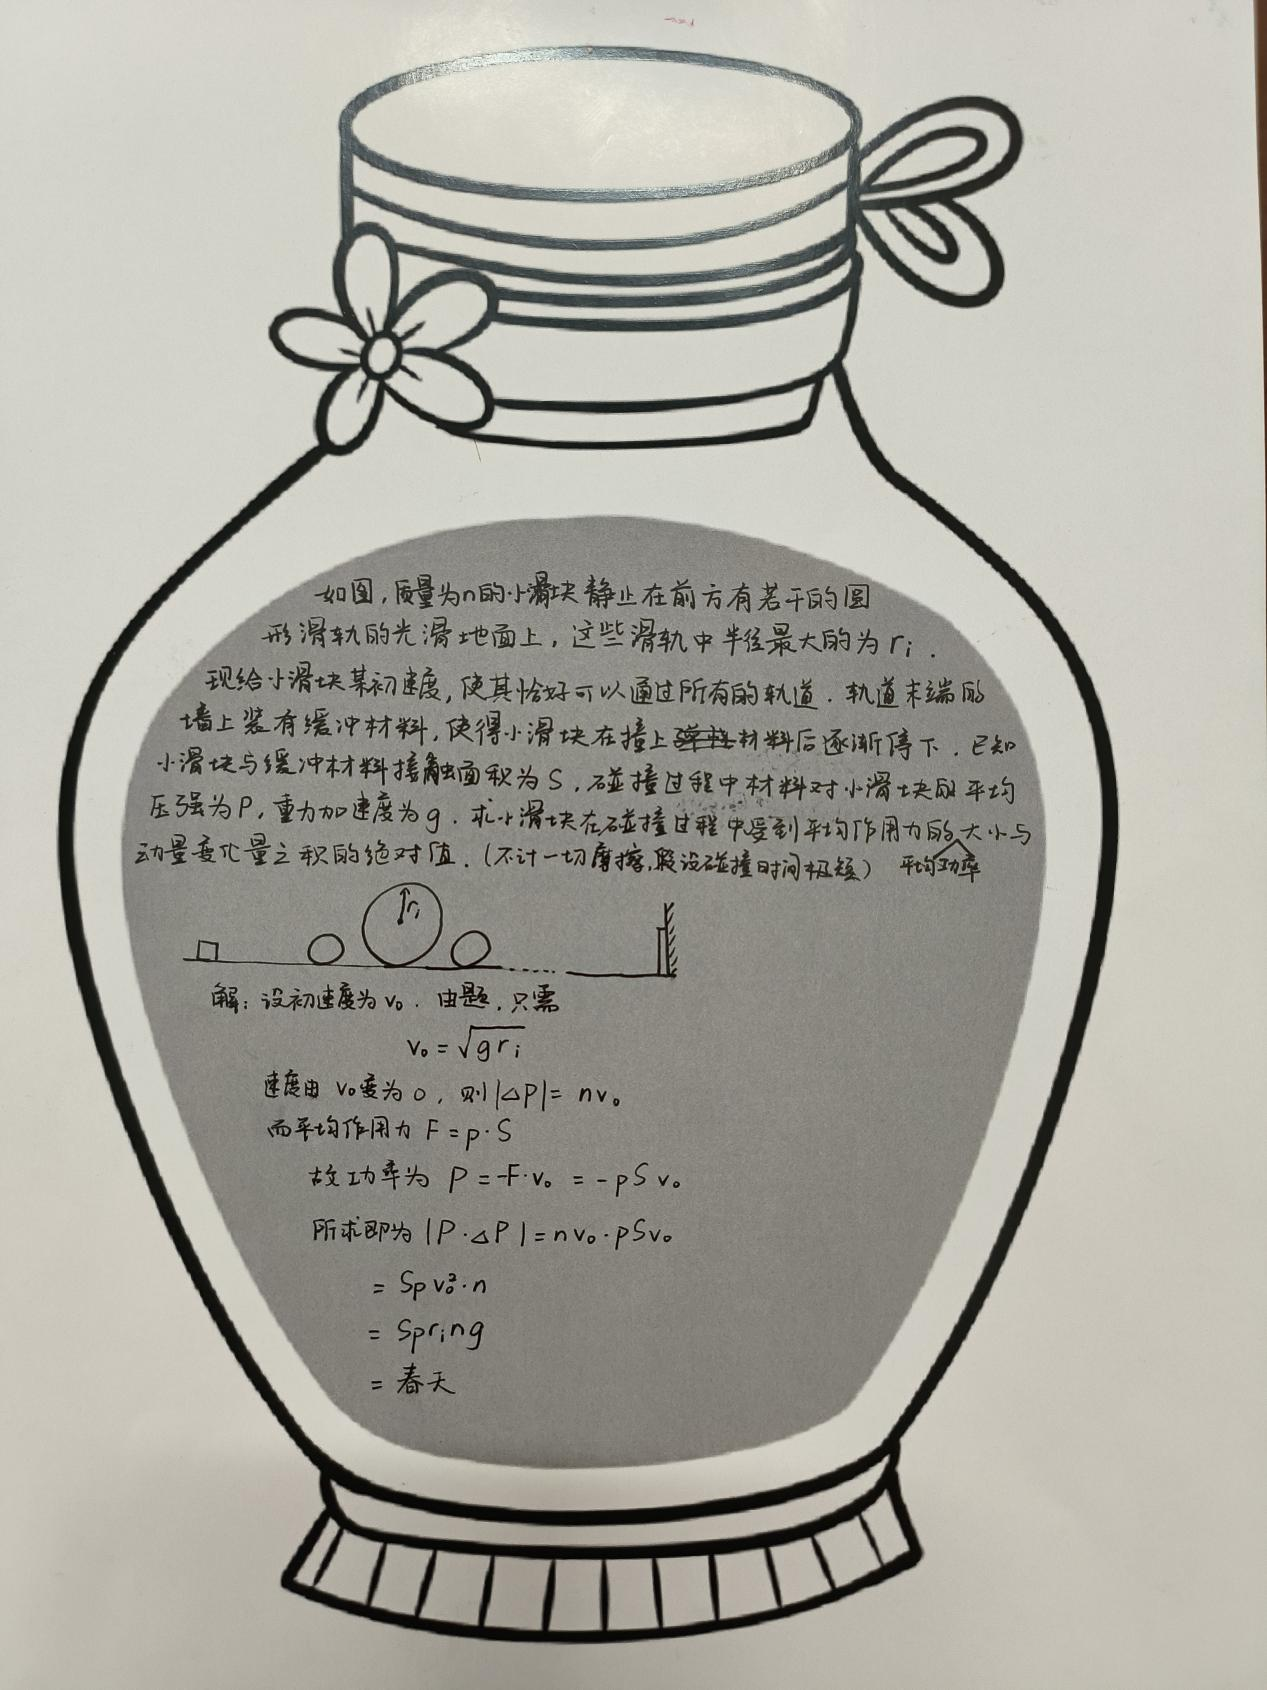 如图,质量为n的小滑块静止在前方有若干的圆
形滑轨的光滑地面上,这些滑轨中半径最大的为rᵢ.
现给小滑块某初速度,使其恰好可以通过所有的轨道.轨道末端的
墙上装有缓冲材料,使得小滑块在撞上材料后逐渐停下.已知
小滑块与缓冲材料接触面积为S,碰撞过程中材料对小滑块的平均
压强为P,重力加速度为g.求小滑块在碰撞过程中受到平均作用力的大小与
动量变化量之积的绝对值.(不计一切摩擦,假设碰撞时间极短) 平均功率
rᵢ
解:设初速度为v₀.由题,只需
v₀=√grᵢ
速度由v₀变为0,则|△P|=nv₀
而平均作用力F=p·S
故功率为P=-F·v₀=-pSv₀
所求即为|P·△P|=nv₀·pSv₀
=Spv₀²·n
=Sprᵢng
=春天